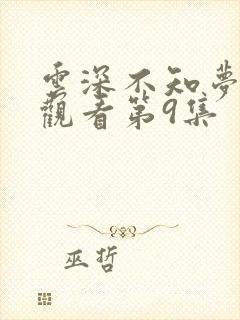 雲深不知夢
觀看第9集
巫哲